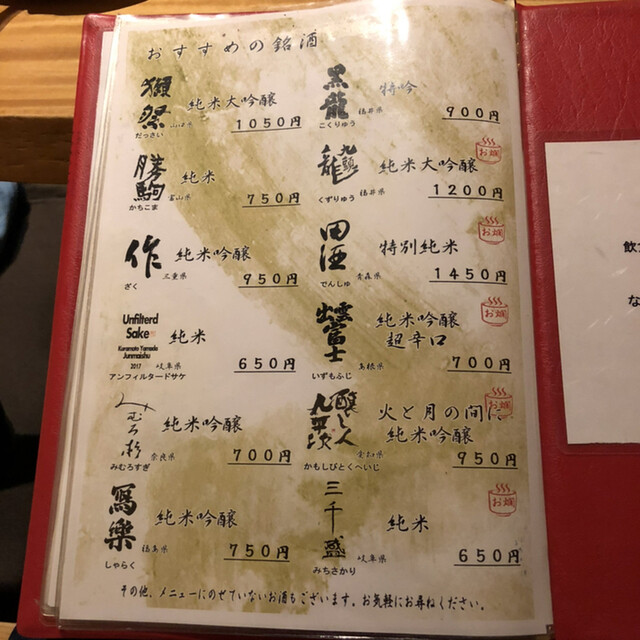 おすすめの銘酒
獺祭 純米大吟醸
だっさい 山口県 1050円
勝駒 純米
かちこま 富山県 750円
作 純米吟醸
ざく 三重県 950円
Unfilterd
Sake 純米
Kuramoto Yamada
Junmaishu
2017 岐阜県 650円
アンフィルタードサケ
みむろ杉 純米吟醸
みむろすぎ 奈良県 700円
寫樂 純米吟醸
しゃらく 福島県 750円
黒龍 特吟
こくりゅう 福井県 900円
お燗
九頭龍 純米大吟醸
くずりゅう 福井県 1200円
お燗
田酒 特別純米
でんしゅ 青森県 1450円
お燗
出雲富士 純米吟醸
超辛口
いずもふじ 島根県 700円
お燗
醸し人九平次 火と月の間に
純米吟醸
かもしびとくへいじ 愛知県 950円
お燗
三千盛 純米
みちさかり 岐阜県 650円
その他、メニューにのせていないお酒もございます。お気軽にお尋ねください。
飲
な